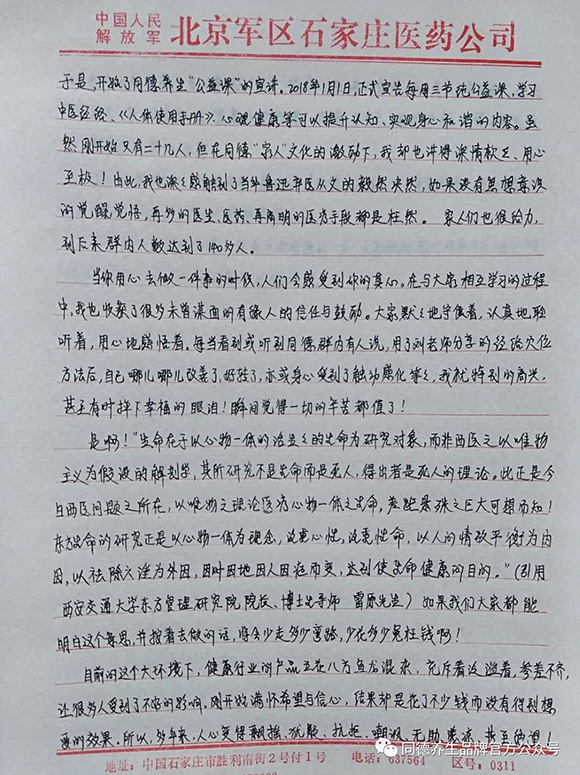 中国人民
解放军 北京军区石家庄医药公司
于是,开始了同德养生“公益课”的宣讲。2018年1月1日,正式宣告每周三节纯公益课,学习
中医经络、《人体使用手册》、心理健康等可以提升认知、实现身心和谐的内容。虽
然刚开始只有二十几人,但在同德“家人”文化的激励下,我却也讲得深情款款、用心
至极!由此,我也深深感触到了当年鲁迅弃医从文的毅然决然,如果没有思想意识
的觉醒觉悟,再多的医生、医药、再高明的医疗手段都是枉然。 家人们也很给力,
到后来群内人数达到了140多人。
当你用心去做一件事的时候,人们会感受到你的真心。在与大家相互学习的过程
中,我也收获了很多未曾谋面的有缘人的信任与鼓励。大家默默地守候着,认真地聆
听着,用心地感悟着。每当看到或听到同德群内有人说,用了刘老师分享的经络穴位
方法后,自己哪儿哪儿改善了,好转了,亦或身心受到了触动感化等等,我就特别的高兴,
甚至有时掉下幸福的眼泪!瞬间觉得一切的辛苦都值了!
是啊!“生命在于以心物一体的活生生的生命为研究对象,而非西医之以唯物
主义为假设的解剖学,其所研究不是生命而是死人,得出者是死人的理论。此正是今
日西医问题之所在,以唯物之理论医疗心物一体之生命,差距悬殊之巨大可想而知!
东方生命的研究正是以心物一体为理念,说竟心性,说竟性命,以人的情故平衡为内
因,以祛除六淫为外因,因时因地因人因症而变,达到使生命健康的目的。”(引用
西安交通大学东方管理研究院院长、博士生导师 雷原先生)如果我们大家都能
明白这个意思,并按着去做的话,将会少走多少弯路,少花多少冤枉钱啊!
目前的这个大环境下,健康行业的产品五花八门鱼龙混杂,充斥着泛滥着,参差不齐,
让很多人受到了不好的影响,刚开始满怀希望与信心,结果却是花了不少钱而没有得到想
要的效果。所以,多年来,人心变得飘摇、犹疑、抗拒、嘲讽、无助、悲凉,甚至绝望!
地址:中国石家庄市胜利南街2号付1号 电话:637564 区号:0311
同德养生品牌官方公众号